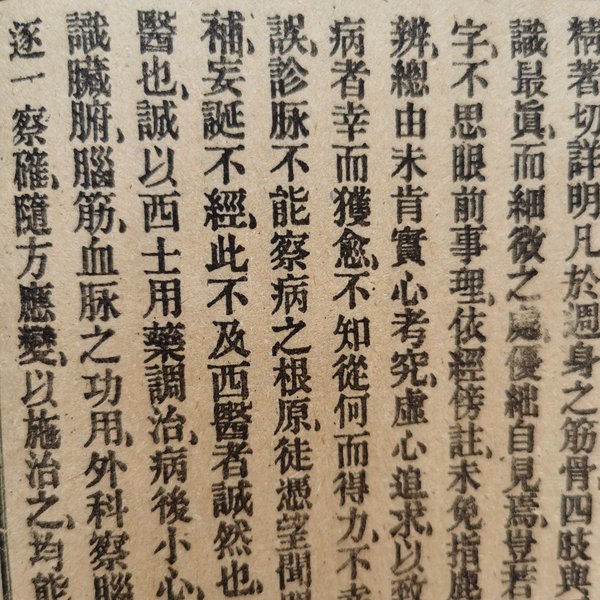 精著切詳明凡於週身之筋骨、四肢與
識最眞、而細微之處、優絀自見焉、豈若
字、不思眼前事理、依經傍註、未免指鹿
辨、總由未肯實心考究、虛心追求、以致
病者幸而獲愈、不知從何而得力、不幸
誤、診脉不能察病之根原、徒憑望聞
補、妄誕不經、此不及西醫者誠然也、
醫也、誠以西士用藥調治、病後小心
識臟腑、腦筋、血脉之功用、外科察腦
逐一察確、隨方應變、以施治之、均能